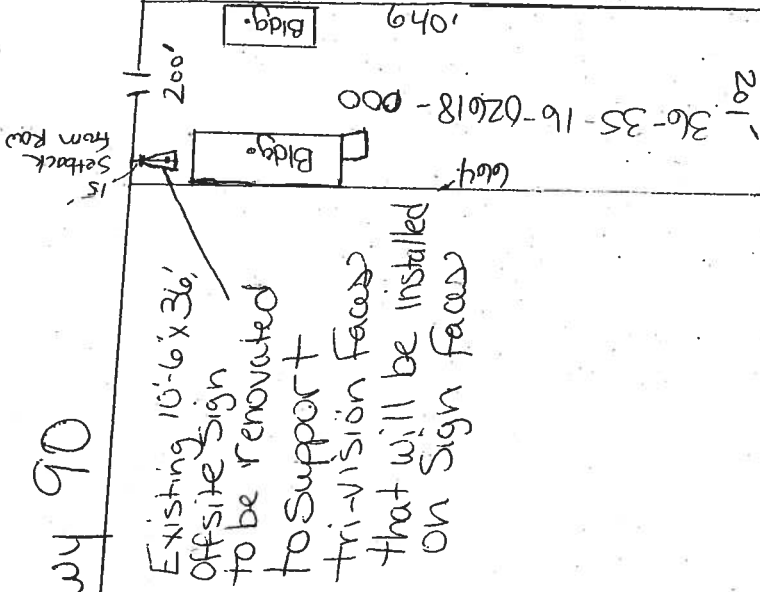 Bldg.
640'
200'
36-35-16-02618-000
201'
15'
Setback
from Row
Bldg.
664'
wy 90
Existing 10'-6"x36'
Offsite Sign
to be renovated
to Support
tri-vision faces
that will be installed
on Sign faces